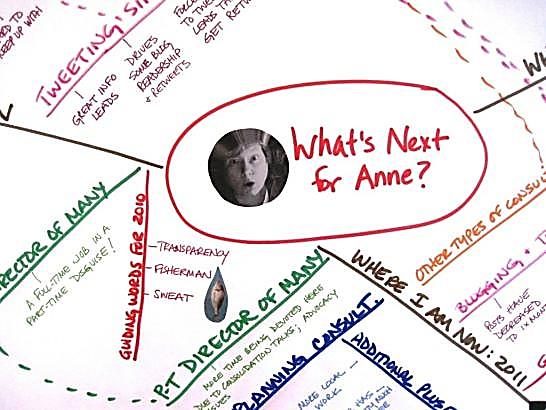 KEEP UP WITH
TWEETING:
GREAT INFO
LEADS
DRIVES
SOME BLOG
READERSHIP
& RETWEETS
LEADS
GET RETW
What's Next
for Anne?
DIRECTOR OF MANY
A FULL-TIME JOB IN A
PART-TIME DISGUISE!
GUIDING WORDS FOR 2010
TRANSPARENCY
FISHERMAN
SWEAT
P.T DIRECTOR OF MANY
MORE TIME BEING DEVOTED HERE
DUE TO CONSOLIDATION TALKS; ADVOCACY
PLANNING CONSULT.
MORE LOCAL
WORK
ADDITIONAL
WHERE I AM NOW: 2011
OTHER TYPES OF CONSUL
BLOGGING +
POSTS HAVE
DECREASED
TO 1X MON